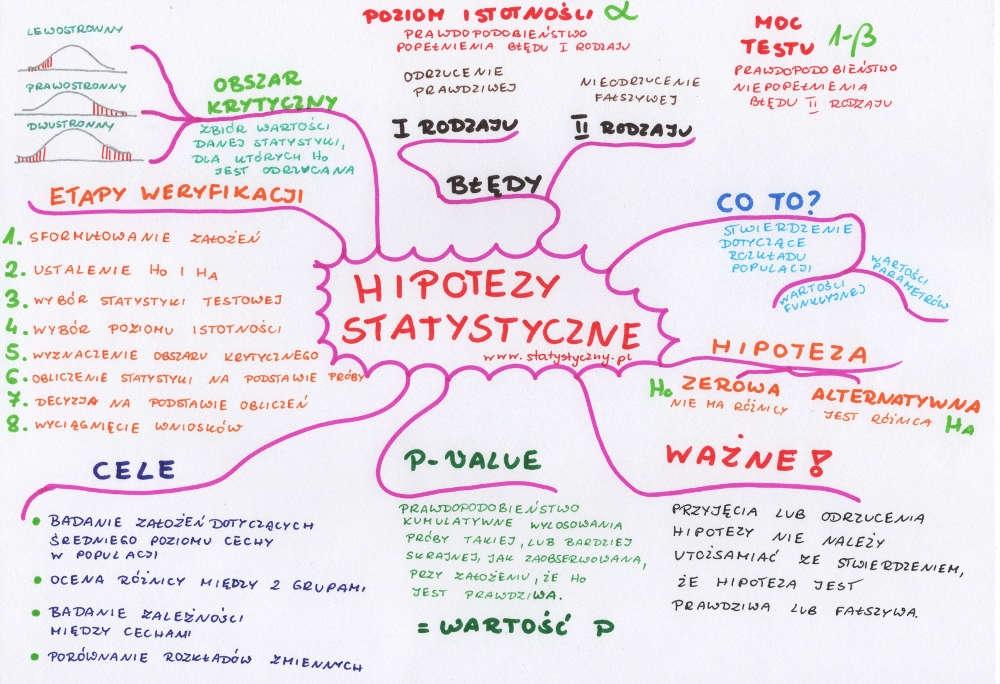 LEWOSTRONNY
PRAWOSTRONNY
DWUSTRONNY
OBSZAR
KRYTYCZNY
ZBIÓR WARTOŚCI
DANEJ STATYSTYKI,
DLA KTÓRYCH H0
JEST ODRZUCANA
POZIOM ISTOTNOŚCI α
PRAWDOPODOBIEŃSTWO
POPEŁNIENIA BŁĘDU I RODZAJU
ODRZUCENIE
PRAWDZIWEJ
NIEODRZUCENIE
FAŁSZYWEJ
I RODZAJU
II RODZAJU
BŁĘDY
MOC
TESTU 1-β
PRAWDOPODOBIEŃSTWO
NIEPOPEŁNIENIA
BŁĘDU II RODZAJU
ETAPY WERYFIKACJI
1. SFORMUŁOWANIE ZAŁOŻEŃ
2. USTALENIE H0 I HA
3. WYBÓR STATYSTYKI TESTOWEJ
4. WYBÓR POZIOMU ISTOTNOŚCI
5. WYZNACZENIE OBSZARU KRYTYCZNEGO
6. OBLICZENIE STATYSTYKI NA PODSTAWIE PRÓBY
7. DECYZJA NA PODSTAWIE OBLICZEŃ
8. WYCIĄGNIĘCIE WNIOSKÓW
HIPOTEZY
STATYSTYCZNE
www.statystyczny.pl
CO TO?
STWIERDZENIE
DOTYCZĄCE
ROZKŁADU
POPULACJI
WARTOŚCI
FUNKCYJNEJ
WARTOŚCI
PARAMETRÓW
HIPOTEZA
H0 ZEROWA
NIE MA RÓŻNICY
ALTERNATYWNA
JEST RÓŻNICA HA
CELE
• BADANIE ZAŁOŻEŃ DOTYCZĄCYCH
ŚREDNIEGO POZIOMU CECHY
W POPULACJI
• OCENA RÓŻNICY MIĘDZY 2 GRUPAMI
• BADANIE ZALEŻNOŚCI
MIĘDZY CECHAMI
• PORÓWNANIE ROZKŁADÓW ZMIENNYCH
P-VALUE
PRAWDOPODOBIEŃSTWO
KUMULATYWNE WYLOSOWANIA
PRÓBY TAKIEJ, LUB BARDZIEJ
SKRAJNEJ, JAK ZAOBSERWOWANA,
PRZY ZAŁOŻENIU, ŻE H0
JEST PRAWDZIWA.
= WARTOŚĆ P
WAŻNE!
PRZYJĘCIA LUB ODRZUCENIA
HIPOTEZY NIE NALEŻY
UTOŻSAMIAĆ ZE STWIERDZENIEM,
ŻE HIPOTEZA JEST
PRAWDZIWA LUB FAŁSZYWA.